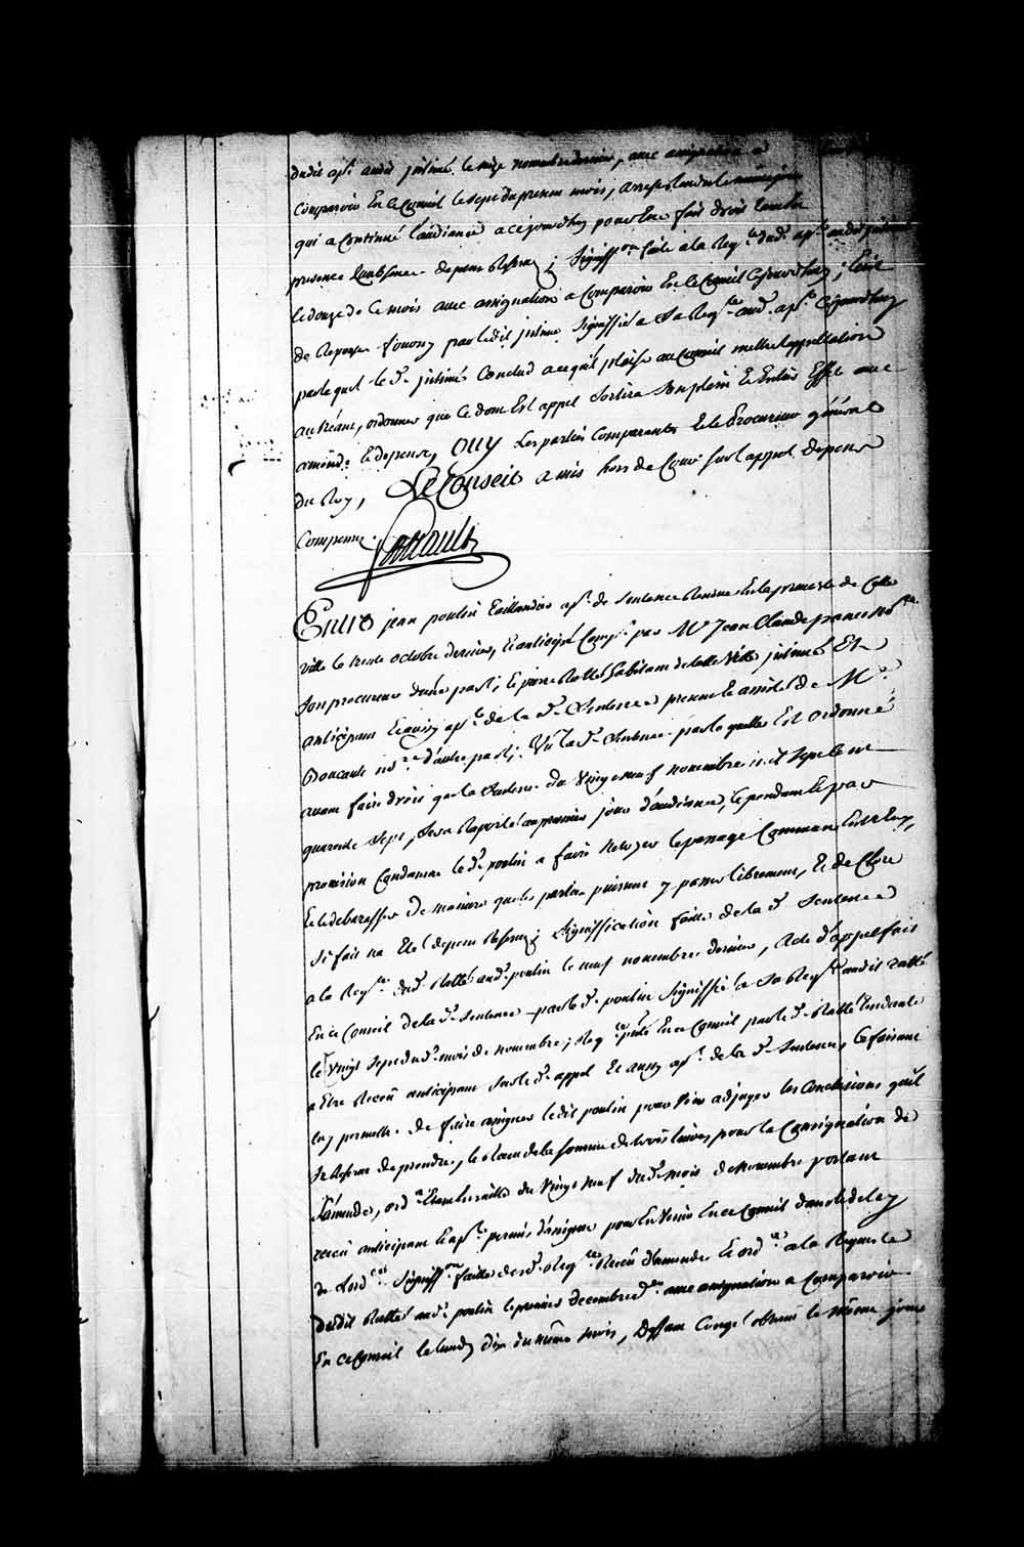 dudit apt. audit jntimé le seize novembre dernier, avec assignation a
Comparoir En ce Conseil le sept du present mois, arrest rendu le
qui a Continué l'audiance a cejourdhuy pour Etre fait droit tant En
presence qu'absence depens Reservez; Signiffon. faite a la Reqte. dud. apt. audit jntimé
le douze de ce mois avec assignation a Comparoir En ce Conseil Cejourdhuy; Ecrit
de Reponse fourny par ledit jntimé signiffié a Sa Reqte. aud. apt. Cejourdhuy
par lequel led. jntimé Conclud a ce qu'il plaise au Conseil mettre l'appellation
au Neant, ordonner que Ce dont Est appel Sortira Son plein Et Entier Effet avec
amende Et depens, OUY Les parties Comparantes Et le Procureur général
du Roy, Le Conseil a mis hors de Cour sur l'appel depens
Compensez.
Entre jean poulin Taillandier apt. de Sentence Rendue En la prevosté de Cette
ville le trente octobre dernier, Et anticipé Compt. par Me Jean Claude panet Nore.
Son procureur d'une part; Et pierre Ratté habitant de cette Ville jntimé Et
anticipant Et aussy apt. de la de. Sentence present Et assisté de Me.
Doucault nore. d'autre part; Vû la de. Sentence par laquelle Est ordonné
avant faire droit que la Sentence du Vingt neuf novembre 
quarente Sept, Sera Raportée au premier jour d'audience, Cependant Et par
provision Condamne led. poulin a faire Netoyer le passage Commun Entr'Eux,
Et le debarasser De maniere que les parties puissent y passer librement, Et de Clore
Si fait na Eté depens Reservez; Signiffication faite de la de. Sentence
a la Reqte. dud. Ratté aud. poulin le neuf novembre dernier, Acte d'appel fait
En ce Conseil de la de. Sentence par led. poulin Signiffié a Sa Reqte. audit Ratté
le Vingt Sept dud. mois de novembre; Reqte. pnté. En ce Conseil par led. Ratté Tendante
a Etre Receu anticipant Sur led. appel Et aussy apt. de la de. Sentence, Ce faisant
luy permettre de faire assigner ledit poulin pour Voir adjuger les Conclusions qu'il
Se Reserve de prendre, le Recu de la somme de trois livres, pour la Consignation de
l'amende, orde. Etant Ensuitte du Vingt neuf dud. mois de Novembre portant
receu anticipant Et apt. permis d'assigner pour En Venir En ce Conseil dans le delay
de Lordce. Signiffon. faite desd. Reqte. Recu d'amende Et orde. a la Requete
dudit Ratté aud. poulin le premier decembre dr. avec assignation a Comparoir
En ce Conseil le lundy dix du même mois, Deffaut Congé obtenu le même jour